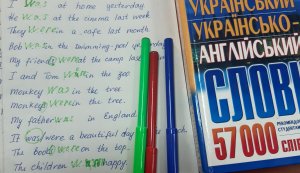 He was at home yesterday.
was at the cinema last week
They were in a cafe last month
Bob was in the swimming pool yesterday
My friends were at the camp last
I and Tom were in the zoo
monkey was in the tree.
monkeys were in the tree.
My father was in England.
It was a beautiful day
The books were on the top.
The children were happy.
УКРАЇНСЬКИЙ
УКРАЇНСЬКО-
АНГЛІЙСЬКИЙ
СЛОВ
57 000 СЛІВ